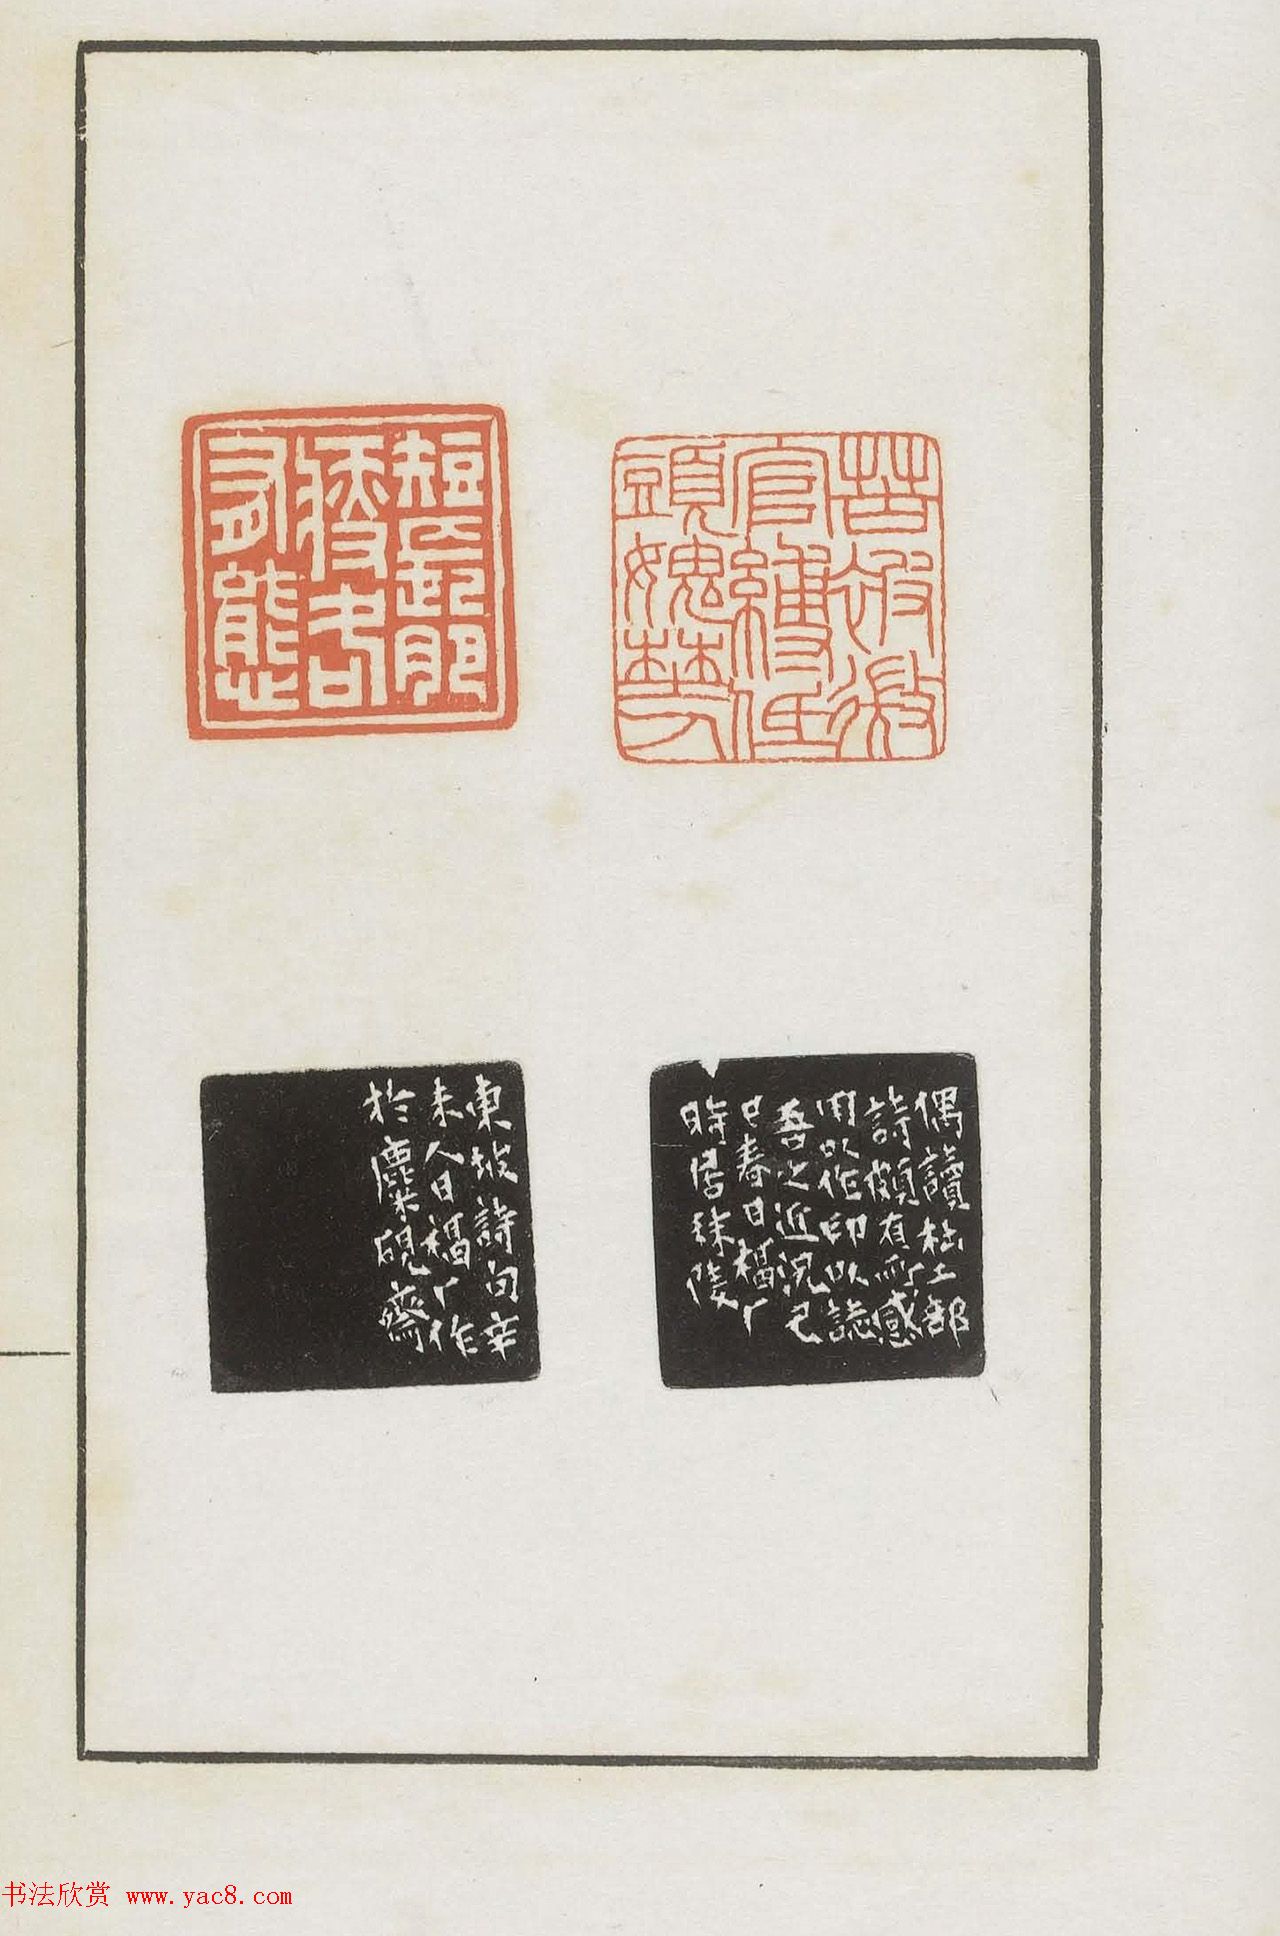 苦被微
官縛低
頭愧埜人
短長肥
瘠各
有態
偶讀杜工部
詩頗有所感
用以作印以誌
吾之近況己
巳春日福厂
時居秣陵
東坡詩句辛
未人日福厂作
於麋硯齋
书法欣赏 www.yac8.com